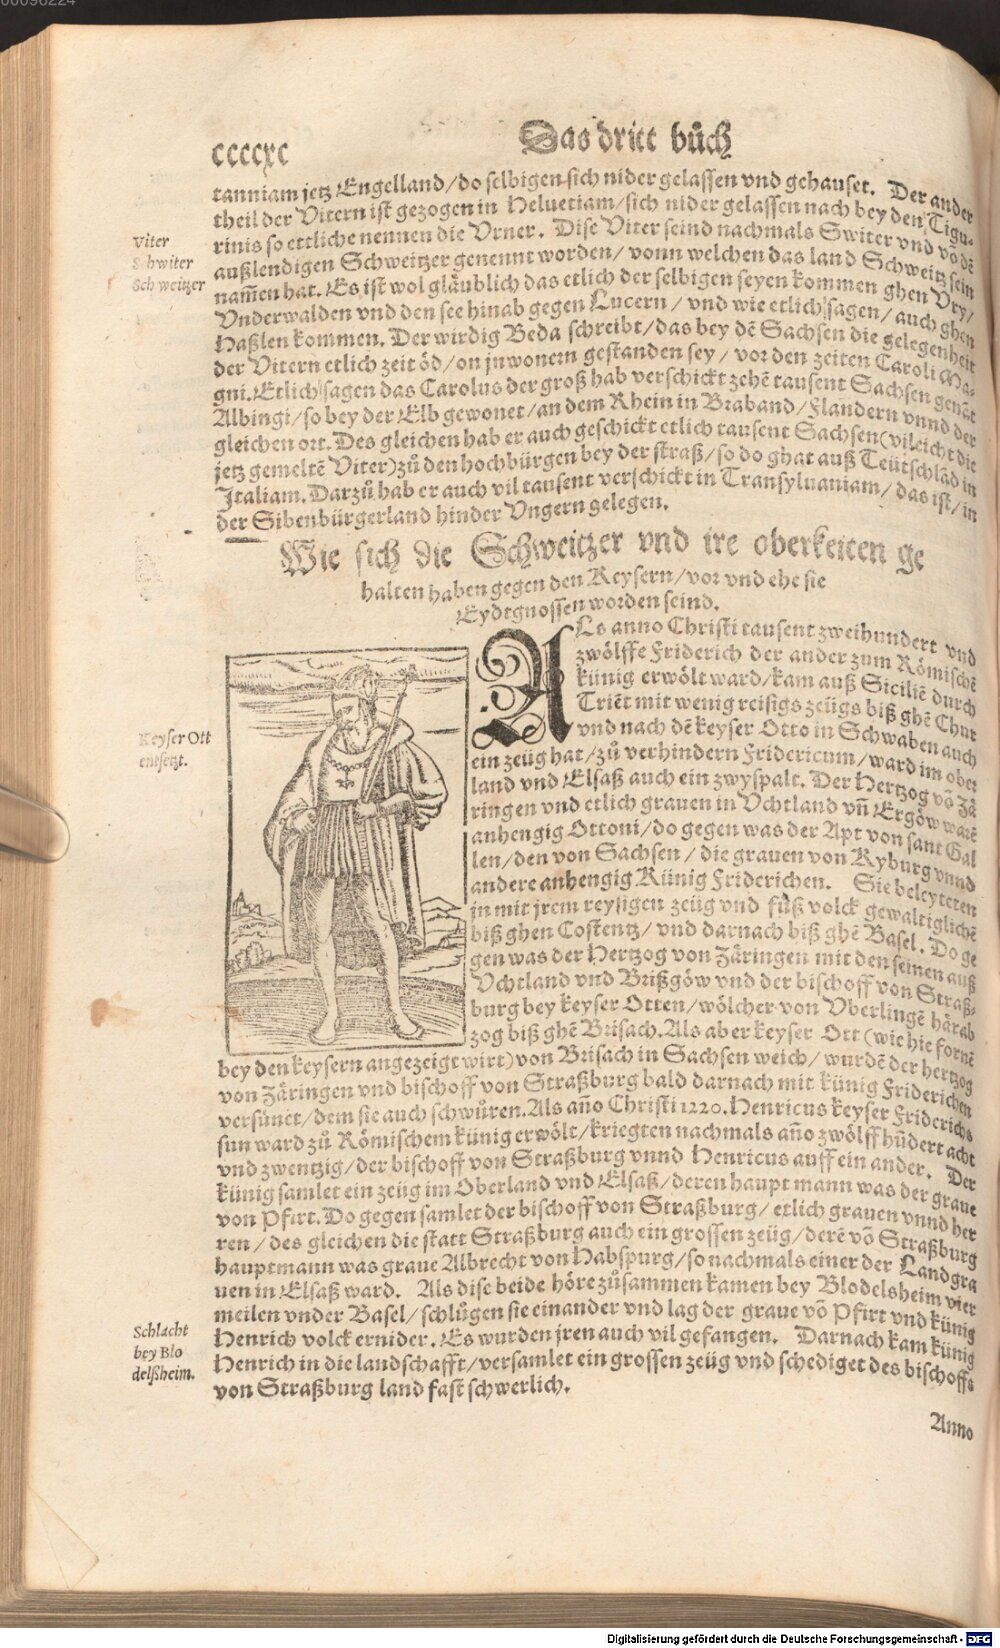 00096224
ccccxc
Das dritt bůch
tanniam jetz Engelland/do selbigen sich nider gelassen vnd gehauset. Der ander
theil der Vitern ist gezogen in Heluetiam/sich nider gelassen nach bey den Tigu-
rinis so ettliche nennen die Vrner. Dise Viter seind nachmals Switer vnd vō dē
außlendigen Schweitzer genennt worden/vonn welchen das land Schweitz sein
nam̄en hat. Es ist wol gläublich das etlich der selbigen seyen kommen ghen Vry/
Vnderwalden vnd den see hinab gegen Lucern/vnd wie etlich sagen/auch ghen
Haßlen kommen. Der wirdig Beda schreibt/das bey dē Sachsen die gelegenheit
der Vitern etlich zeit öd/on jnwonern gestanden sey/vor den zeiten Caroli Ma-
gni. Etlich sagen das Carolus der groß hab verschickt zehē tausent Sachsen genāt
Albingi/so bey der Elb gewonet/an dem Rhein in Braband/Flandern vnnd der
gleichen ort. Des gleichen hab er auch geschickt etlich tausent Sachsen (vileicht die
jetz gemeltē Viter) zů den hochbürgen bey der straß/so do ghat auß Teütschlād in
Italiam. Darzů hab er auch vil tausent verschickt in Transyluaniam/das ist/in
der Sibenbürgerland hinder Vngern gelegen.
Viter
Schwiter
Schweitzer
Wie sich die Schweitzer vnd ire oberkeiten ge
halten haben gegen den Keysern/vor vnd ehe sie
Eydtgnossen worden seind.
ALs anno Christi tausent zweihundert vnd
zwölffe Friderich der ander zum Römischē
künig erwölt ward/kam auß Siciliē durch
Triēt mit wenig reisigs zeügs biß ghē Chur
vnd nach dē keyser Otto in Schwaben auch
ein zeüg hat/zů verhindern Fridericum/ward im ober
land vnd Elsaß auch ein zwyspalt. Der Hertzog vō Zā
ringen vnd etlich grauen in Vchtland vn̄ Ergöw warē
anhengig Ottoni/do gegen was der Apt von sant Gal
len/den von Sachsen/die grauen von Kyburg vnnd
andere anhengig Künig Friderichen. Sie beleyteten
jn mit jrem reysigen zeüg vnd fůß volck gewaltiglichē
biß ghen Costentz/vnd darnach biß ghē Basel. Do ge
gen was der Hertzog von Zäringen mit den seinen auß
Vchtland vnd Brißgöw vnd der bischoff von Straß-
burg bey keyser Otten/wölcher von Vberlingē härab
zog biß ghē Brisach. Als aber keyser Ott (wie hie fornē
bey den keysern angezeigt wirt) von Brisach in Sachsen weich/wurdē der hertzog
von Zäringen vnd bischoff von Straßburg bald darnach mit künig Friderichen
versünet/dem sie auch schwůren. Als an̄o Christi 1220. Henricus keyser Friderichs
sun ward zů Römischem künig erwölt/kriegten nachmals an̄o zwölff hūdert acht
vnd zwentzig/der bischoff von Straßburg vnnd Henricus auff ein ander. Der
künig samlet ein zeüg im Oberland vnd Elsaß/deren haupt mann was der graue
von Pfirt. Do gegen samlet der bischoff von Straßburg/etlich grauen vnnd her
ren/des gleichen die statt Straßburg auch ein grossen zeüg/derē vō Straßburg
hauptmann was graue Albrecht von Habspurg/so nachmals einer der Landgra
uen in Elsaß ward. Als dise beide höre zůsammen kamen bey Blodelsheim vier
meilen vnder Basel/schlůgen sie einander vnd lag der graue vō Pfirt vnd künig
Henrich volck ernider. Es wurden jren auch vil gefangen. Darnach kam künig
Henrich in die landschafft/versamlet ein grossen zeüg vnd schediget des bischoffs
von Straßburg land fast schwerlich.
Keyser Ott
entsetzt.
Schlacht
bey Blo
delßheim.
Anno
Digitalisierung gefördert durch die Deutsche Forschungsgemeinschaft - DFG